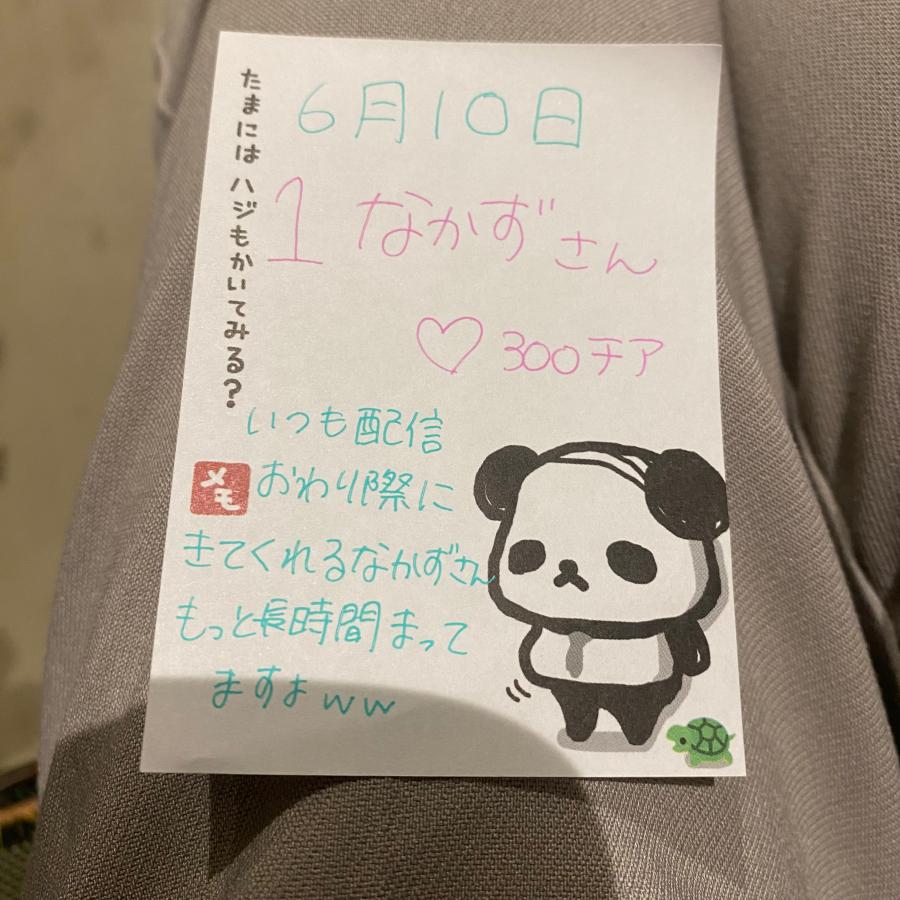 たまには ハジもかいてみる?
6月10日
1 なかずさん
♡ 300チア
いつも配信
メモ
おわり際に
きてくれるなかずさん
もっと長時間まって
ますよww